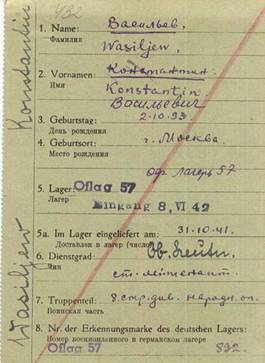 432
1. Name: Васильев,
Фамилия Wasiljew,
2. Vornamen: Константин
Имя Konstantin
Васильевич
3. Geburtstag: 2-10.93
День рождения
4. Geburtsort: г. Москва
Место рождения
оф. лагерь 57
5. Lager: Oflag 57
Лагер
Eingang 8. VI 42
5a. Im Lager eingeliefert am: 31.10.41.
Доставлен в лагер (число)
6. Dienstgrad: Ob. Leutn.
Чин ст. лейтенант
7. Truppenteil: 8. стр. див. народн. оп.
Воинская часть
8. Nr. der Erkennungsmarke des deutschen Lagers:
Номер военнопленного в германском лагере
Oflag 57 892.
Wasiljew Konstantin